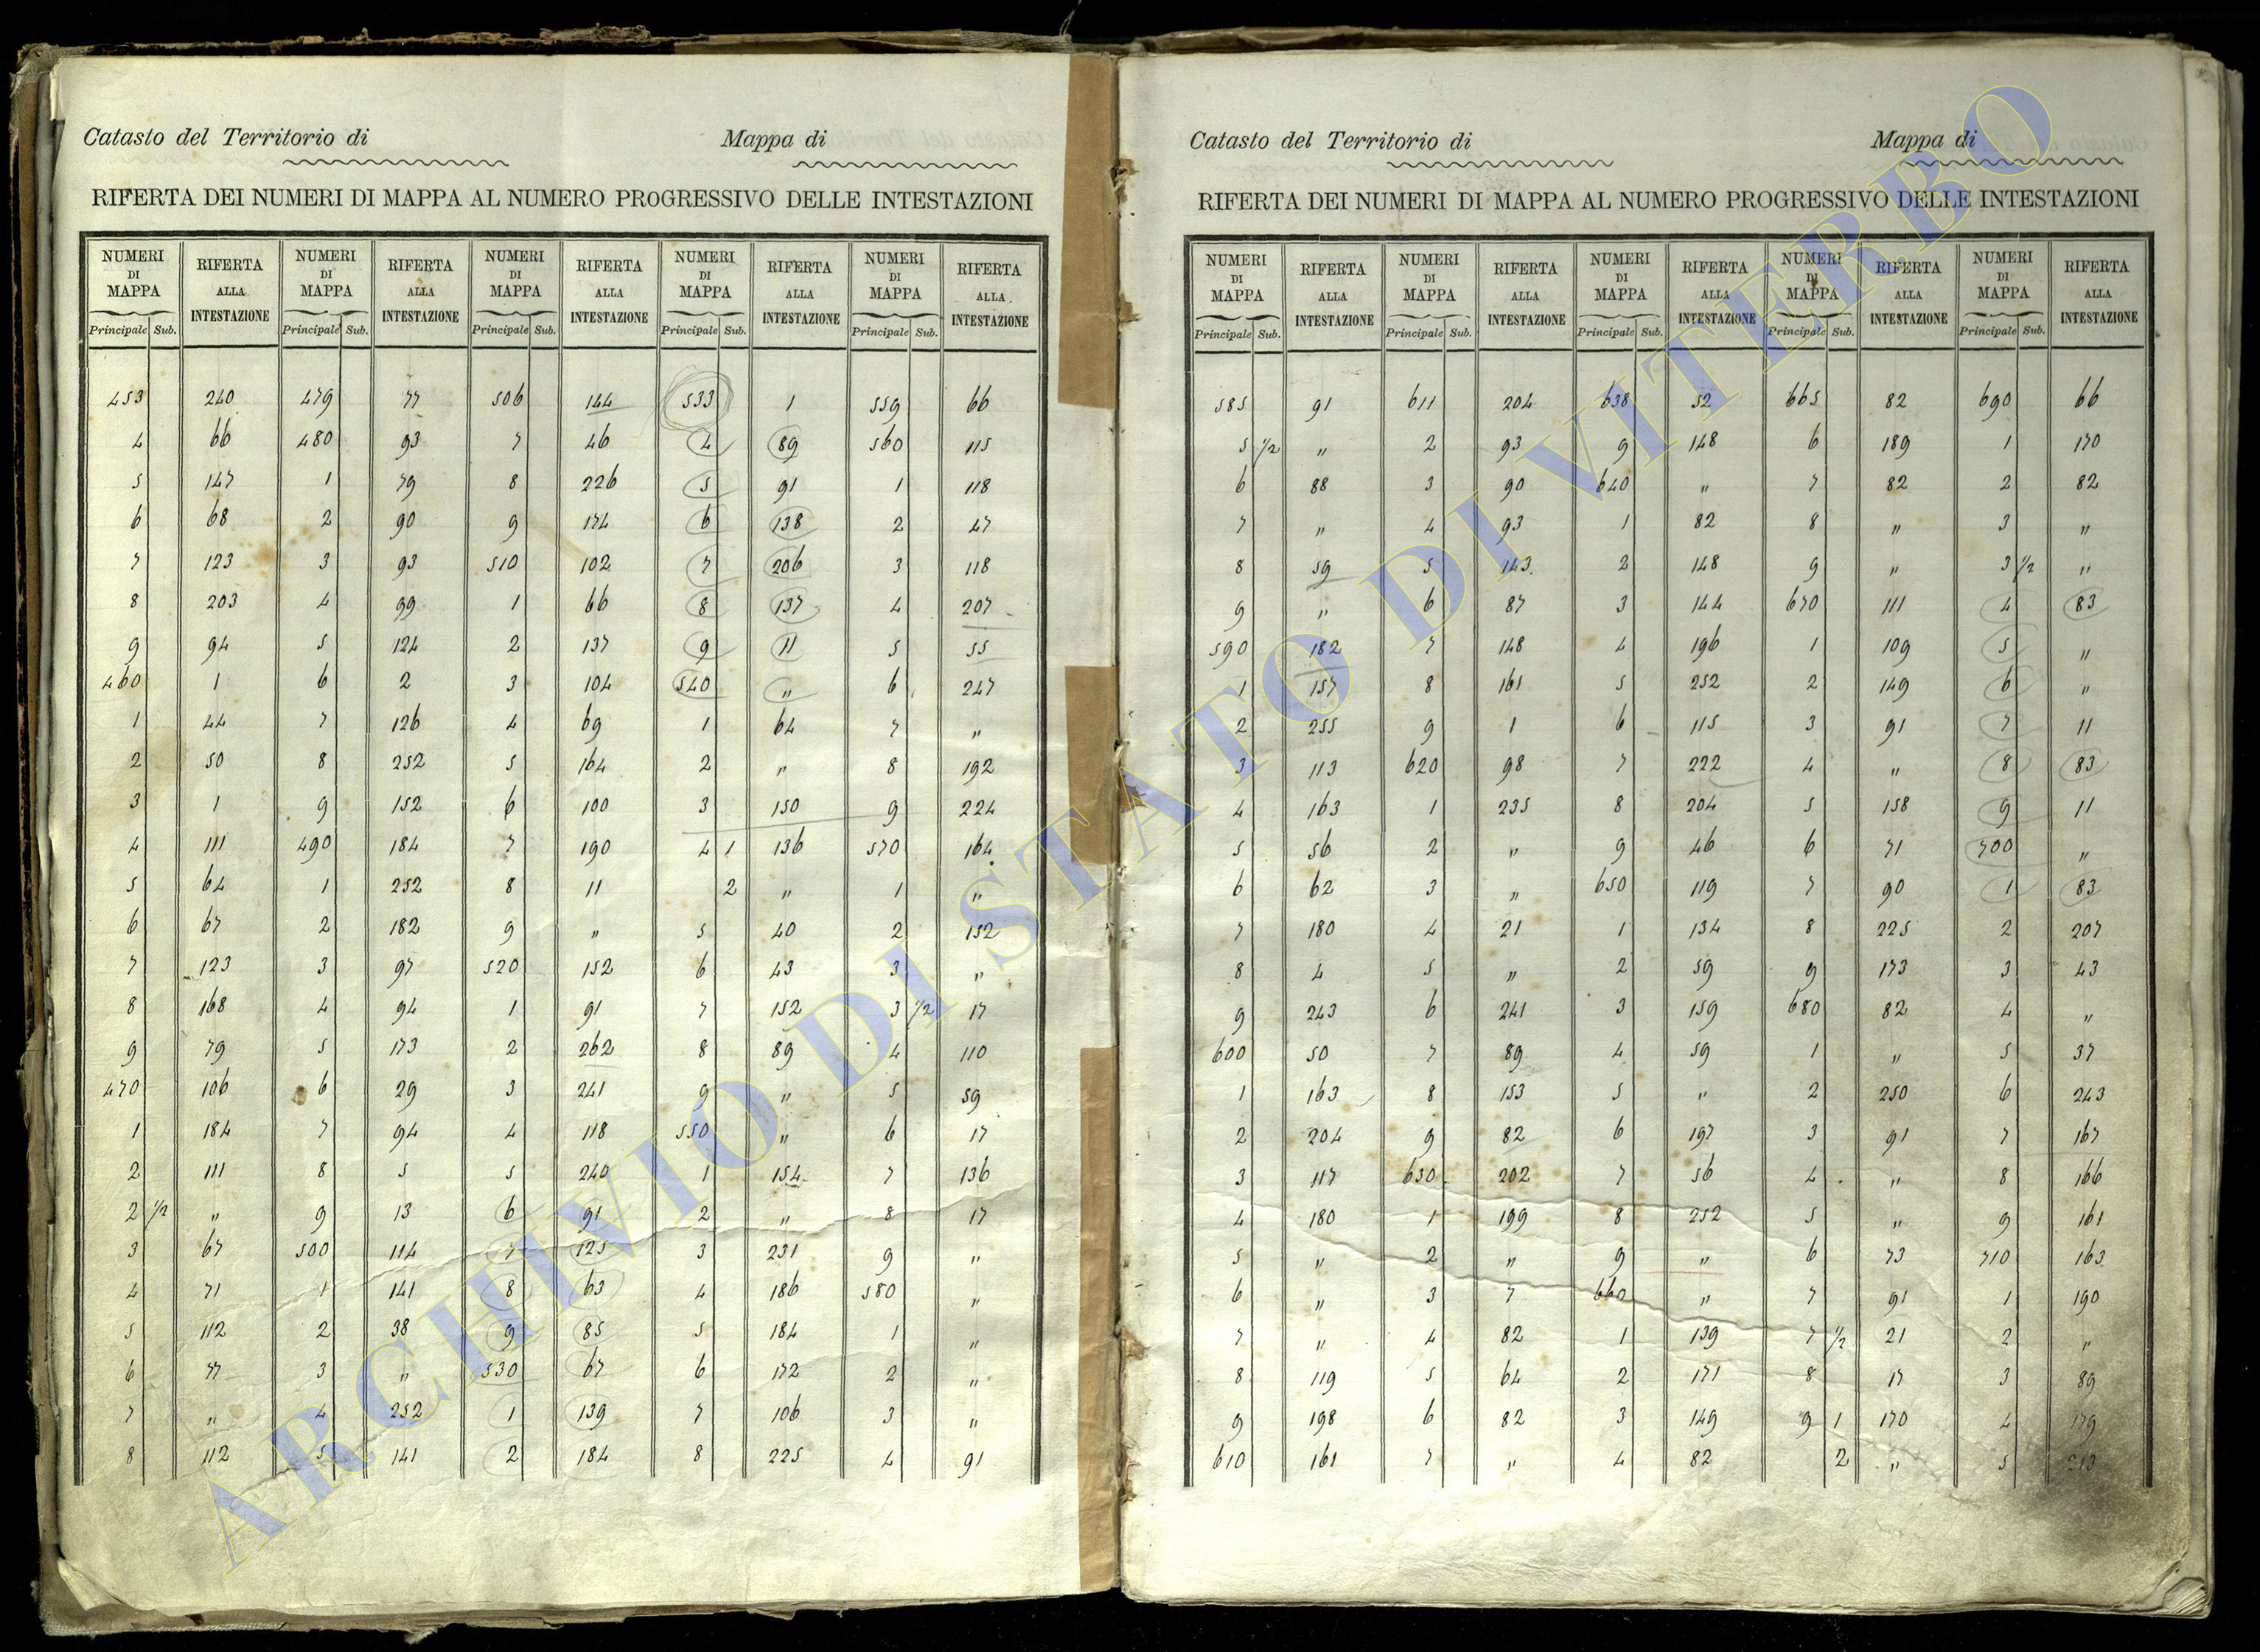 Catasto del Territorio di Mappa di
RIFERTA DEI NUMERI DI MAPPA AL NUMERO PROGRESSIVO DELLE INTESTAZIONI
NUMERI DI MAPPA RIFERTA ALLA INTESTAZIONE NUMERI DI MAPPA RIFERTA ALLA INTESTAZIONE NUMERI DI MAPPA RIFERTA ALLA INTESTAZIONE NUMERI DI MAPPA RIFERTA ALLA INTESTAZIONE NUMERI DI MAPPA RIFERTA ALLA INTESTAZIONE
Principale Sub. Principale Sub. Principale Sub. Principale Sub. Principale Sub.
453 240 479 77 506 144 533 1 559 66
4 66 480 93 7 46 4 89 560 115
5 147 1 79 8 226 5 91 1 118
6 68 2 90 9 174 6 138 2 47
7 123 3 93 510 102 7 206 3 118
8 203 4 99 1 66 8 137 4 207
9 94 5 124 2 137 9 11 5 55
460 1 6 2 3 104 540 " 6 247
1 44 7 126 4 69 1 64 7 "
2 50 8 252 5 164 2 " 8 192
3 1 9 152 6 100 3 150 9 224
4 111 490 184 7 190 4 1 136 570 164
5 64 1 252 8 11 2 " 1 "
6 67 2 182 9 " 5 40 2 152
7 123 3 97 520 152 6 43 3 "
8 168 4 94 1 91 7 152 3 1/2 17
9 79 5 173 2 262 8 89 4 110
470 106 6 29 3 241 9 " 5 59
1 184 7 94 4 118 550 " 6 17
2 111 8 5 5 240 1 154 7 136
2 1/2 " 9 13 6 91 2 " 8 17
3 67 500 114 7 125 3 231 9 "
4 71 1 141 8 63 4 186 580 "
5 112 2 38 9 85 5 184 1 "
6 77 3 " 530 67 6 172 2 "
7 " 4 252 1 139 7 106 3 "
8 112 5 141 2 184 8 225 4 91
Catasto del Territorio di Mappa di
RIFERTA DEI NUMERI DI MAPPA AL NUMERO PROGRESSIVO DELLE INTESTAZIONI
NUMERI DI MAPPA RIFERTA ALLA INTESTAZIONE NUMERI DI MAPPA RIFERTA ALLA INTESTAZIONE NUMERI DI MAPPA RIFERTA ALLA INTESTAZIONE NUMERI DI MAPPA RIFERTA ALLA INTESTAZIONE NUMERI DI MAPPA RIFERTA ALLA INTESTAZIONE
Principale Sub. Principale Sub. Principale Sub. Principale Sub. Principale Sub.
585 91 611 204 638 52 665 82 690 66
5 1/2 " 2 93 9 148 6 189 1 170
6 88 3 90 640 " 7 82 2 82
7 " 4 93 1 82 8 " 3 "
8 59 5 143 2 148 9 " 3 1/2 "
9 " 6 87 3 144 670 111 4 83
590 182 7 148 4 196 1 109 5 "
1 157 8 161 5 252 2 149 6 "
2 255 9 1 6 115 3 91 7 11
3 113 620 98 7 222 4 " 8 83
4 163 1 235 8 204 5 158 9 11
5 56 2 " 9 46 6 71 700 "
6 62 3 " 650 119 7 90 1 83
7 180 4 21 1 134 8 225 2 207
8 4 5 " 2 59 9 173 3 43
9 243 6 241 3 159 680 82 4 "
600 50 7 89 4 59 1 " 5 37
1 163 8 153 5 " 2 250 6 243
2 204 9 82 6 197 3 91 7 167
3 117 630 202 7 56 4 " 8 166
4 180 1 199 8 252 5 " 9 161
5 " 2 " 9 " 6 73 710 163
6 " 3 7 660 " 7 91 1 190
7 " 4 82 1 139 7 1/2 21 2 "
8 119 5 64 2 171 8 17 3 89
9 198 6 82 3 149 9 1 170 4 179
610 161 7 " 4 82 2 " 5 213
ARCHIVIO DI STATO DI VITERBO